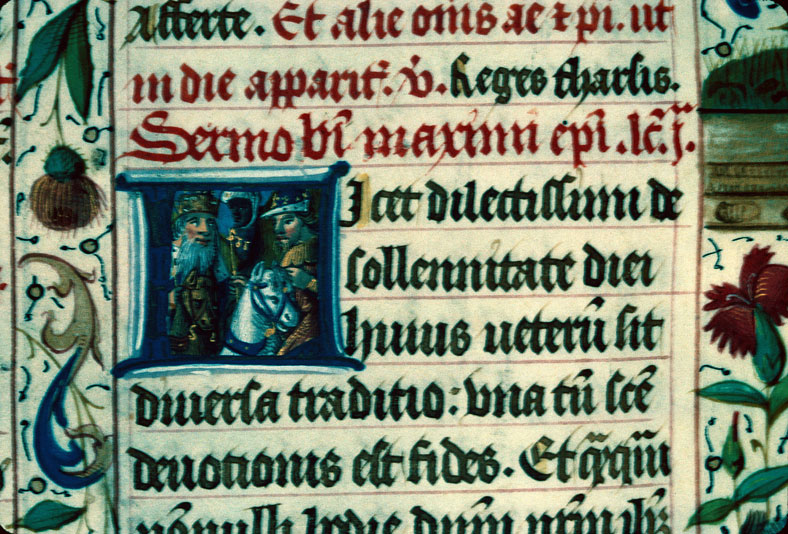 Afferte. Et alie om̄s ae ⁊ pi. ut
in die apparit̄. v̄. Reges tharsis.
Sermo bī maximi epī. lc̄. j.
Licet dilectissimi de
sollennitate diei
huius ueterū sit
diuersa traditio: vna tn̄ scē
deuotionis est fides. Et
nōnulli hodie dn̄m nr̄m